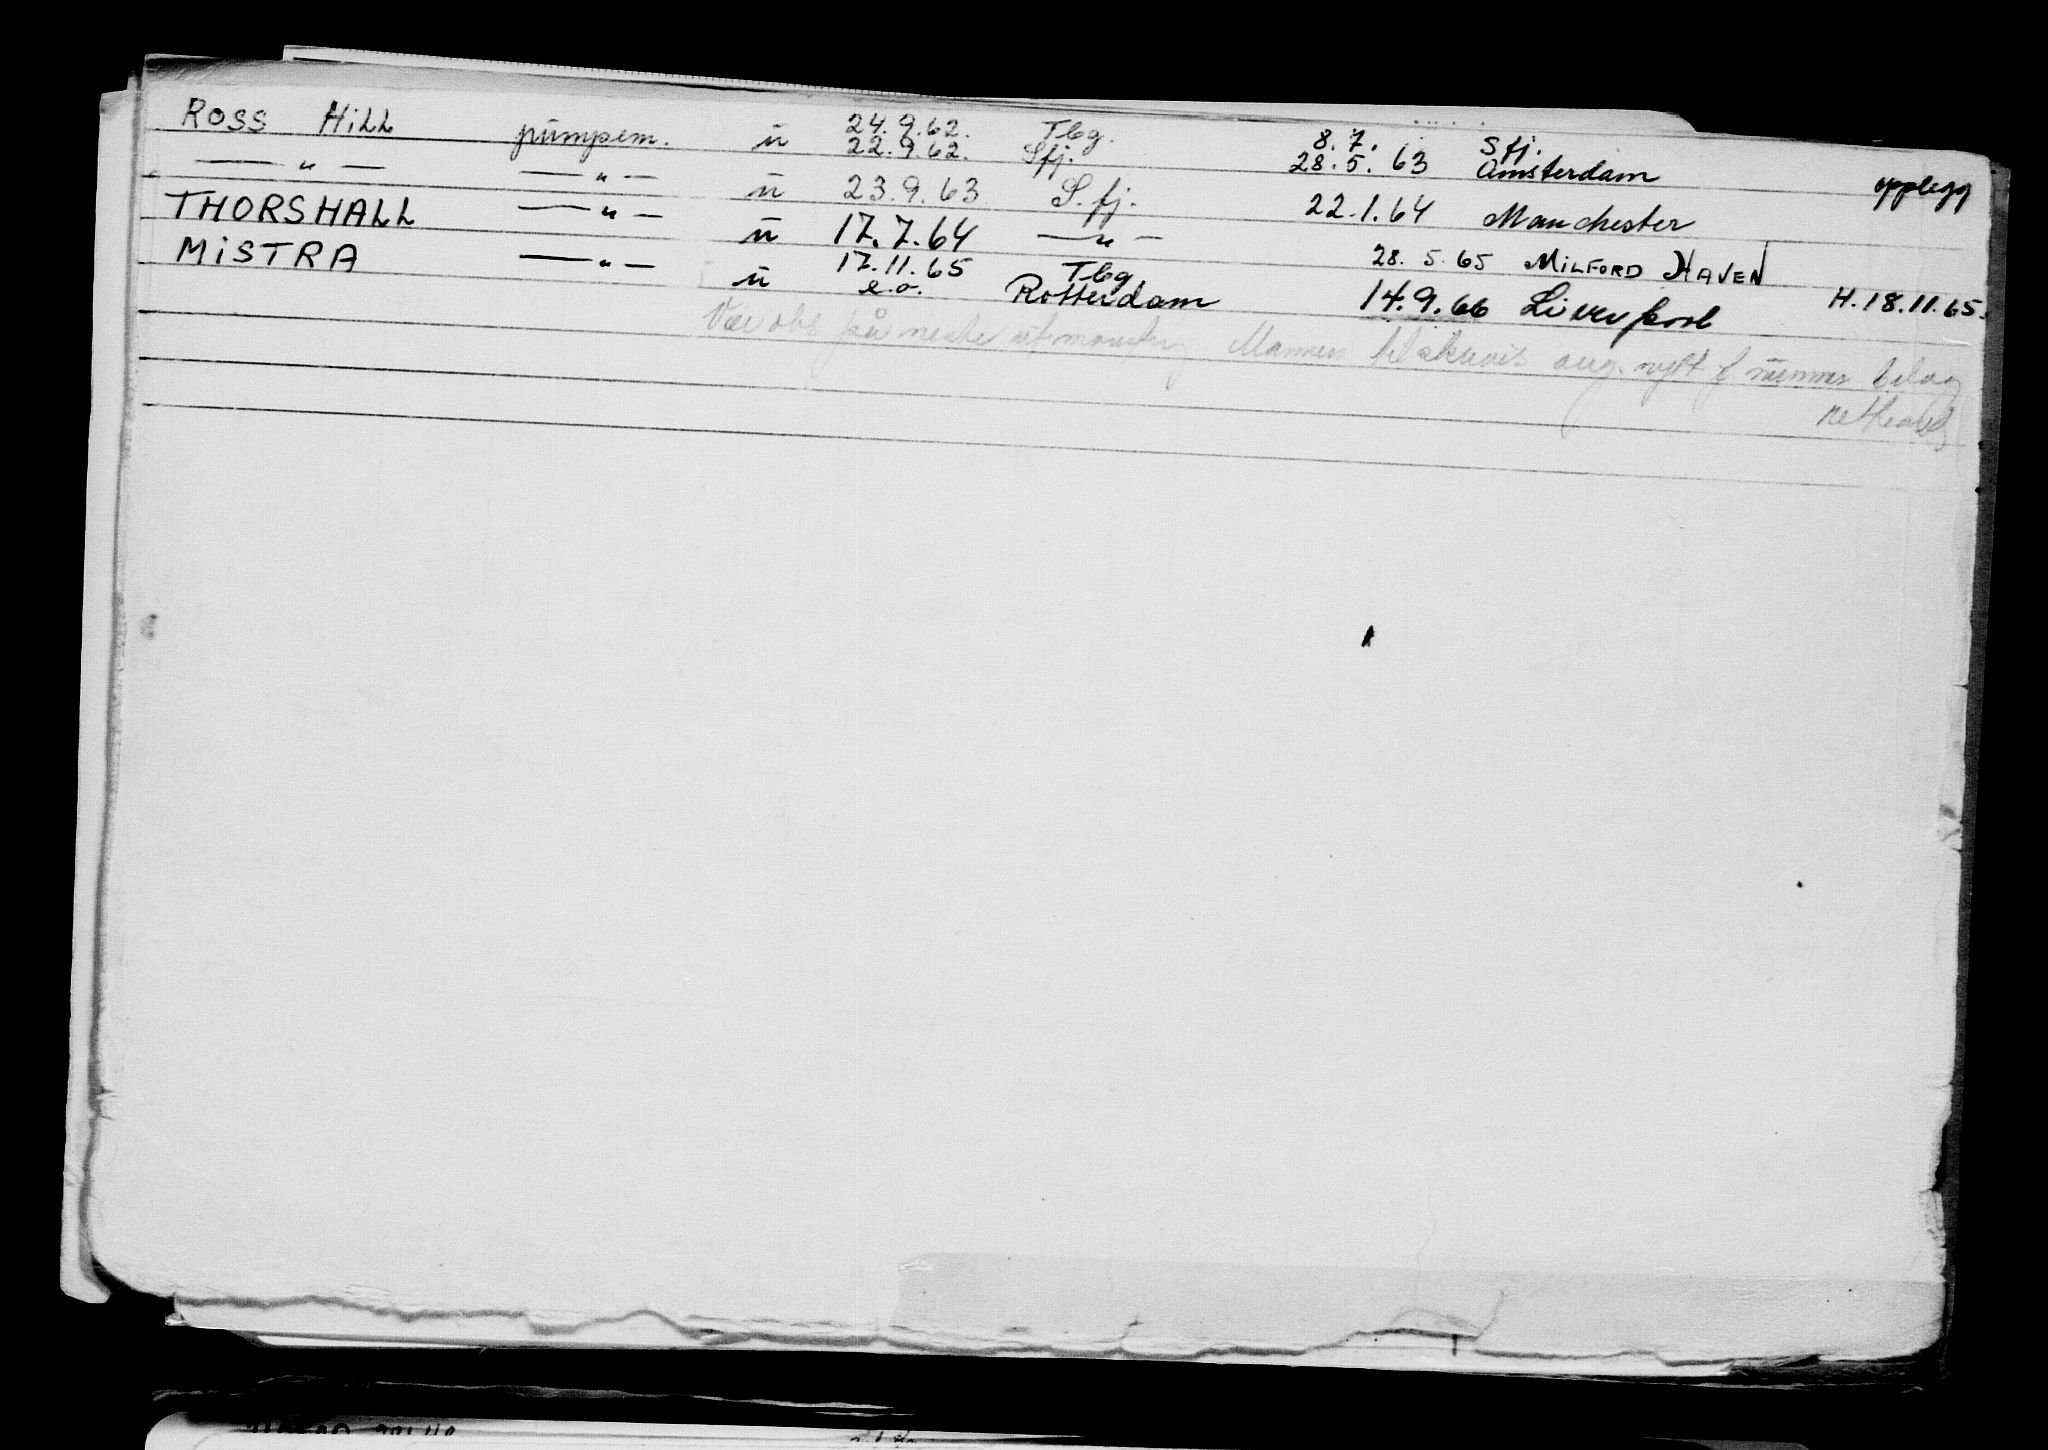 ROSS HILL pumpem. u 24.9.62. Tbg. 8.7. Sfj.
22.9.62. Sfj. 28.5.63 Amsterdam opplegg
— " — — " — u 23.9.63 S.fj. 22.1.64 Manchester
THORSHALL — " — u 17.7.64 — " — 28.5.65 MILFORD HAVEN
MISTRA — " — u 17.11.65 Tbg
e.o. Rotterdam 14.9.66 Liverpool H.18.11.65.
Vær obs på neste utmønstring Mannen